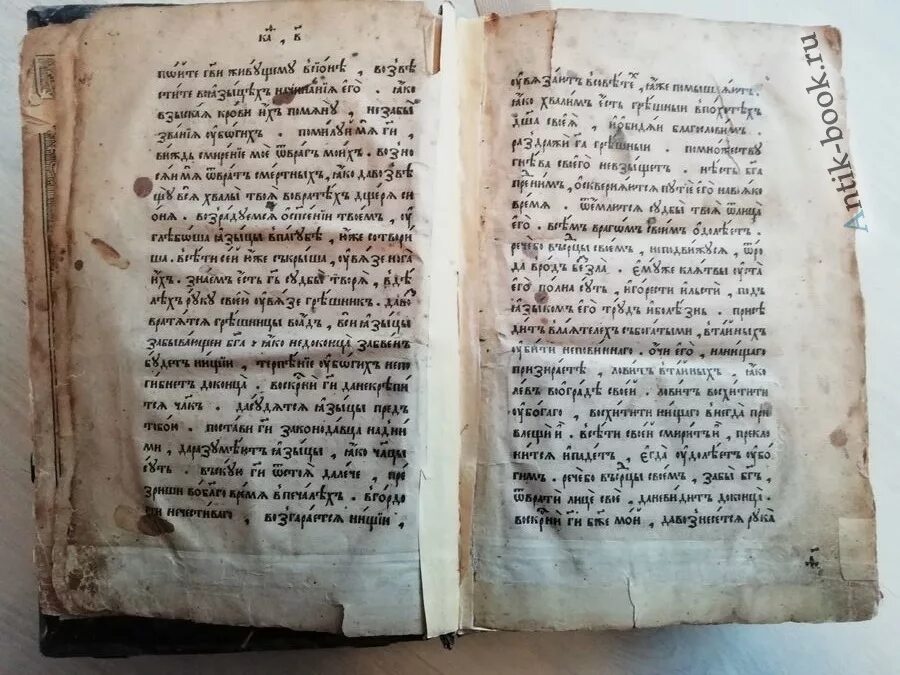 ка҃ , в҃
по́йте гв҃и живꙋ́щемꙋ всїо́нѣ , возвѣ
сти́те воꙗзы́цехъ начина́нїѧ е҆го̀ . ꙗ҆́кѡ
взыска́ѧ кро́ви и҆́хъ помѧнꙋ̀ , незабы̀
зва́нїѧ ᲂу҆бо́гихъ . поми́лꙋй мѧ̀ гв҃и ,
ви́ждь смире́нїе моѐ ѿвра́гъ мои́хъ . возно
сѧ́и мѧ̀ ѿвра́тъ сме́ртныхъ , ꙗ҆́кѡ давозвѣ
щꙋ̀ всѧ̀ хвалы̀ твоѧ̀ вовратѣ́хъ дще́ре сї
ѡ́нѧ . возра́дꙋемсѧ ѡ҆спасе́нїи твое́мъ , ᲂу҆
глѣбо́ша ꙗ҆зы́цы впа́гꙋбѣ , ю҆́же сотвори́
ша . всѣ́ти се́й ю҆́же съкры́ша , ᲂу҆вѧ́зе нога̀
и҆́хъ . зна́емъ є҆́сть гд҃ь сꙋдбы̀ творѧ̀ , вдѣ́
лѣхъ рꙋкꙋ̀ свое́й ᲂу҆вѧ́зе грѣ́шникъ . даво
вратѧ́тсѧ грѣ́шницы воа́дъ , вси̑ ꙗ҆зы́цы
забыва́ющеи бг҃а . ꙗ҆́кѡ недоконца̀ забве́нъ
бꙋ́детъ ни́щїи , терпѣ́нїе ᲂу҆бо́гихъ непо
ги́бнетъ доконца̀ . воскр҃нѝ гв҃и дане крѣпи́
тсѧ чл҃къ . дасꙋ́дѧтсѧ ꙗ҆зы́цы предъ
тобо́ю . поста́ви гв҃и законода́вца надни́
ми , даразꙋмѣ́ютъ ꙗ҆зы́цы , ꙗ҆́кѡ чл҃цы
сꙋ́ть . вы́скꙋю гв҃и ѿстоѧ̀ дале́че , пре
зри́ши во бл҃го вре́мѧ впеча́лехъ . вгордо
сти нечести́ваго , возгара́етсѧ ни́щїи ,
ᲂу҆вѧза́ютъ всовѣ́те , ꙗ҆́же помышлѧ́ютъ .
ꙗ҆́кѡ хвали́мъ є҆́сть грѣ́шныи впо́хотехъ
дш҃а своеѧ̀ , и҆ѡ҆би́дѧи благослови́мъ .
раздражѝ гд҃а грѣ́шныи . помно́жествꙋ
гнѣ́ва своего̀ невзы́щетъ . нѣ́сть бг҃а
пред ни́мъ , ѡ҆сквернѧ́ютсѧ пꙋтїѐ е҆го̀ навсѧ́ко
вре́мѧ . ѿе́млютсѧ сꙋдбы̀ твоѧ̀ ѿлица̀
е҆го̀ . всѣ́мъ враго́мъ свои́мъ ѡ҆долѣ́етъ .
рече́ бо въсрцы свое́мъ , неподви́жꙋсѧ , ѿро́
да врѡ́дъ беззла̀ . є҆мꙋ́же клѧ́твы ᲂу҆ста̀
е҆го̀ полна̀ сꙋ́ть , и҆го́рести и҆льстѝ , подъ
ꙗ҆зы́комъ е҆го̀ трꙋ́дъ и҆болѣ́знь . присѣ
ди́тъ влаѧ́телехъ събога́тыми , вта́йныхъ
ᲂу҆би́ти непови́ннаго . ѻ҆́чи е҆го̀ , нани́щаго
призира́етѣ , лови́тъ вта́йныхъ , ꙗ҆́кѡ
ле́въ воогра́дѣ свое́й . лови́тъ восхити́ти
ᲂу҆бо́гаго , восхити́ти ни́щаго внегда̀ при
влещѝ и҆̀ . всѣ́ти свое́й смири́тъ и҆̀ , прекло
ни́тсѧ и҆паде́тъ , є҆гда̀ ᲂу҆долѣ́етъ ᲂу҆бо́
гимъ . рече́ бо въсрцы свое́мъ , забы̀ бг҃ъ ,
ѿвратѝ лицѐ своѐ , даневи́дитъ доконца̀ .
воскр҃нѝ гв҃и бж҃е мо́й , давознесе́тсѧ рꙋка̀